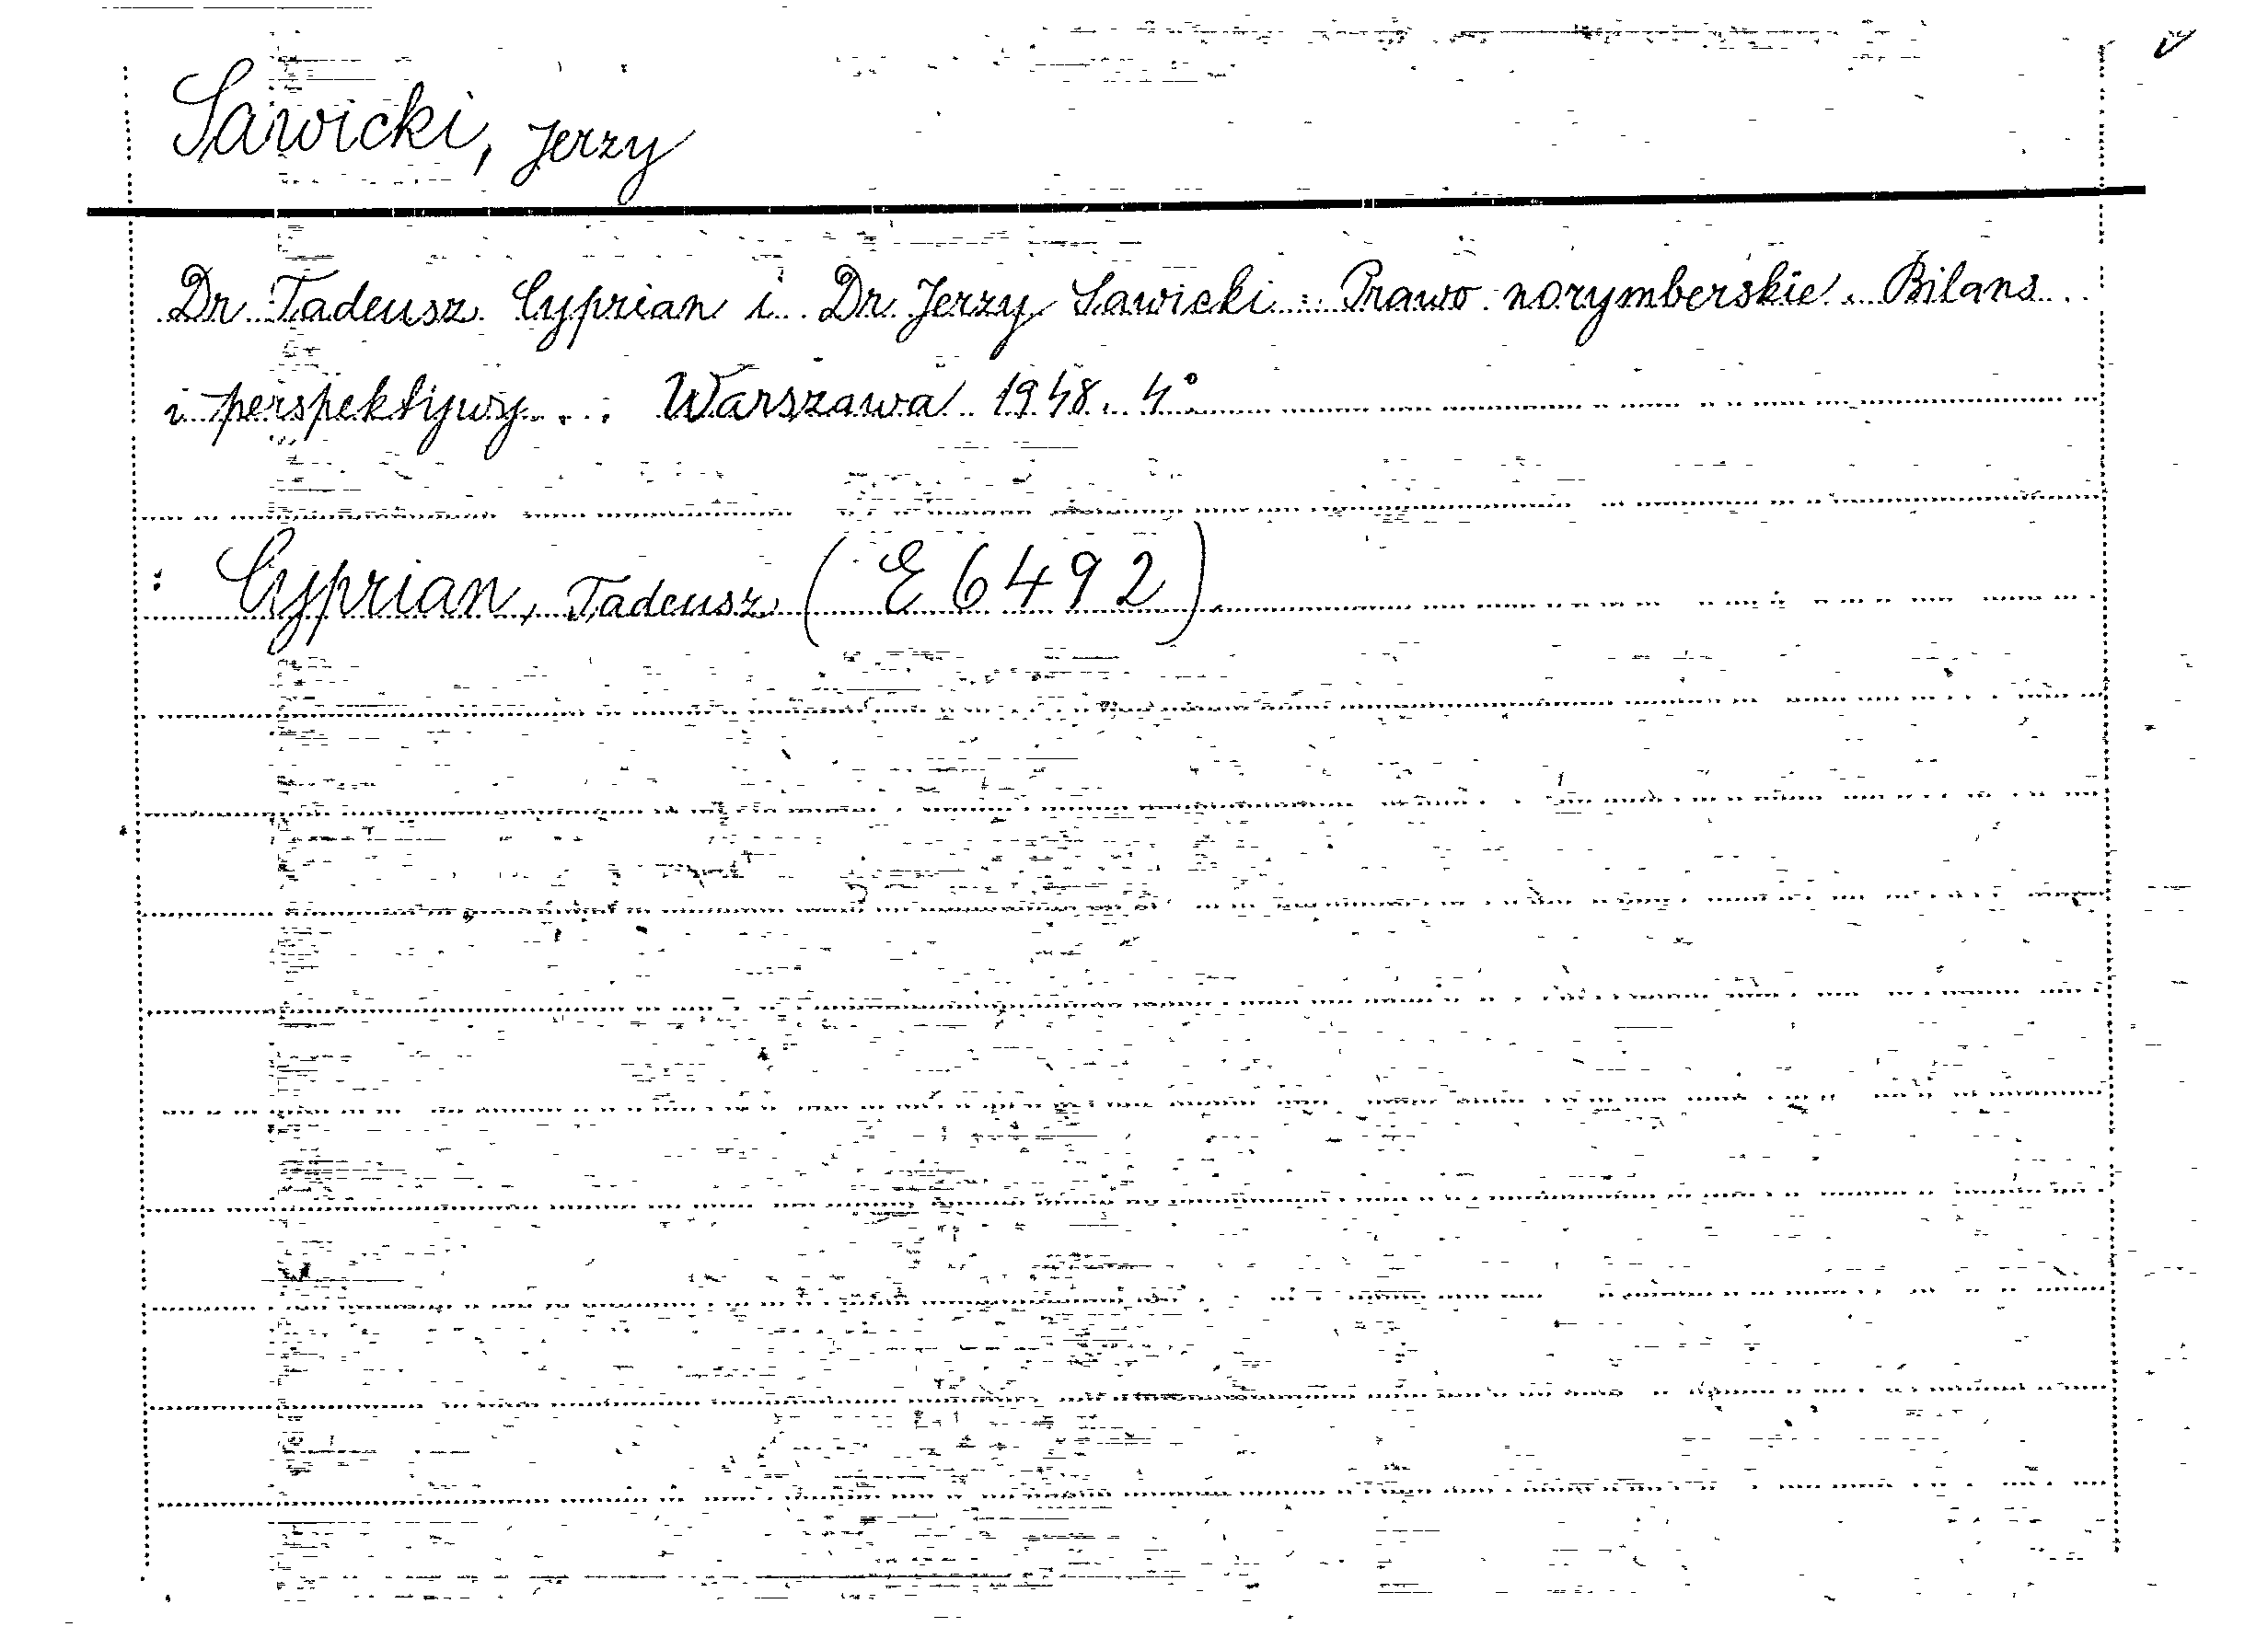 Sawicki, Jerzy
Dr Tadeusz Cyprian i Dr Jerzy Sawicki: Prawo norymberskie. Bilans
i perspektywy... Warszawa 1948. 4°
: Cyprian, Tadeusz (E 6492).